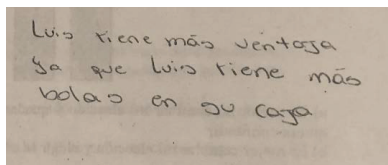 Luis tiene más ventaja
ya que Luis tiene más
bolas en su caja